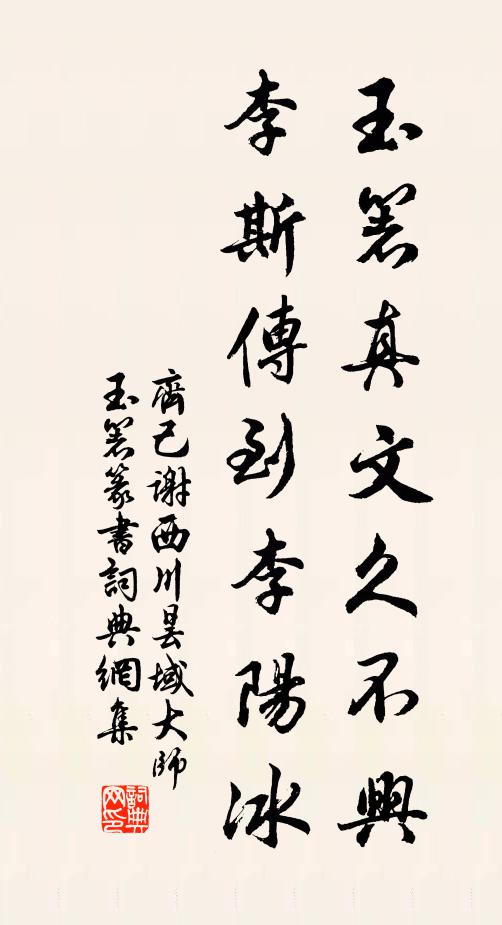 玉箸真文久不興
李斯傳到李陽冰
齊己謝西川曇域大師
玉箸篆書詞典網集
詞典网印